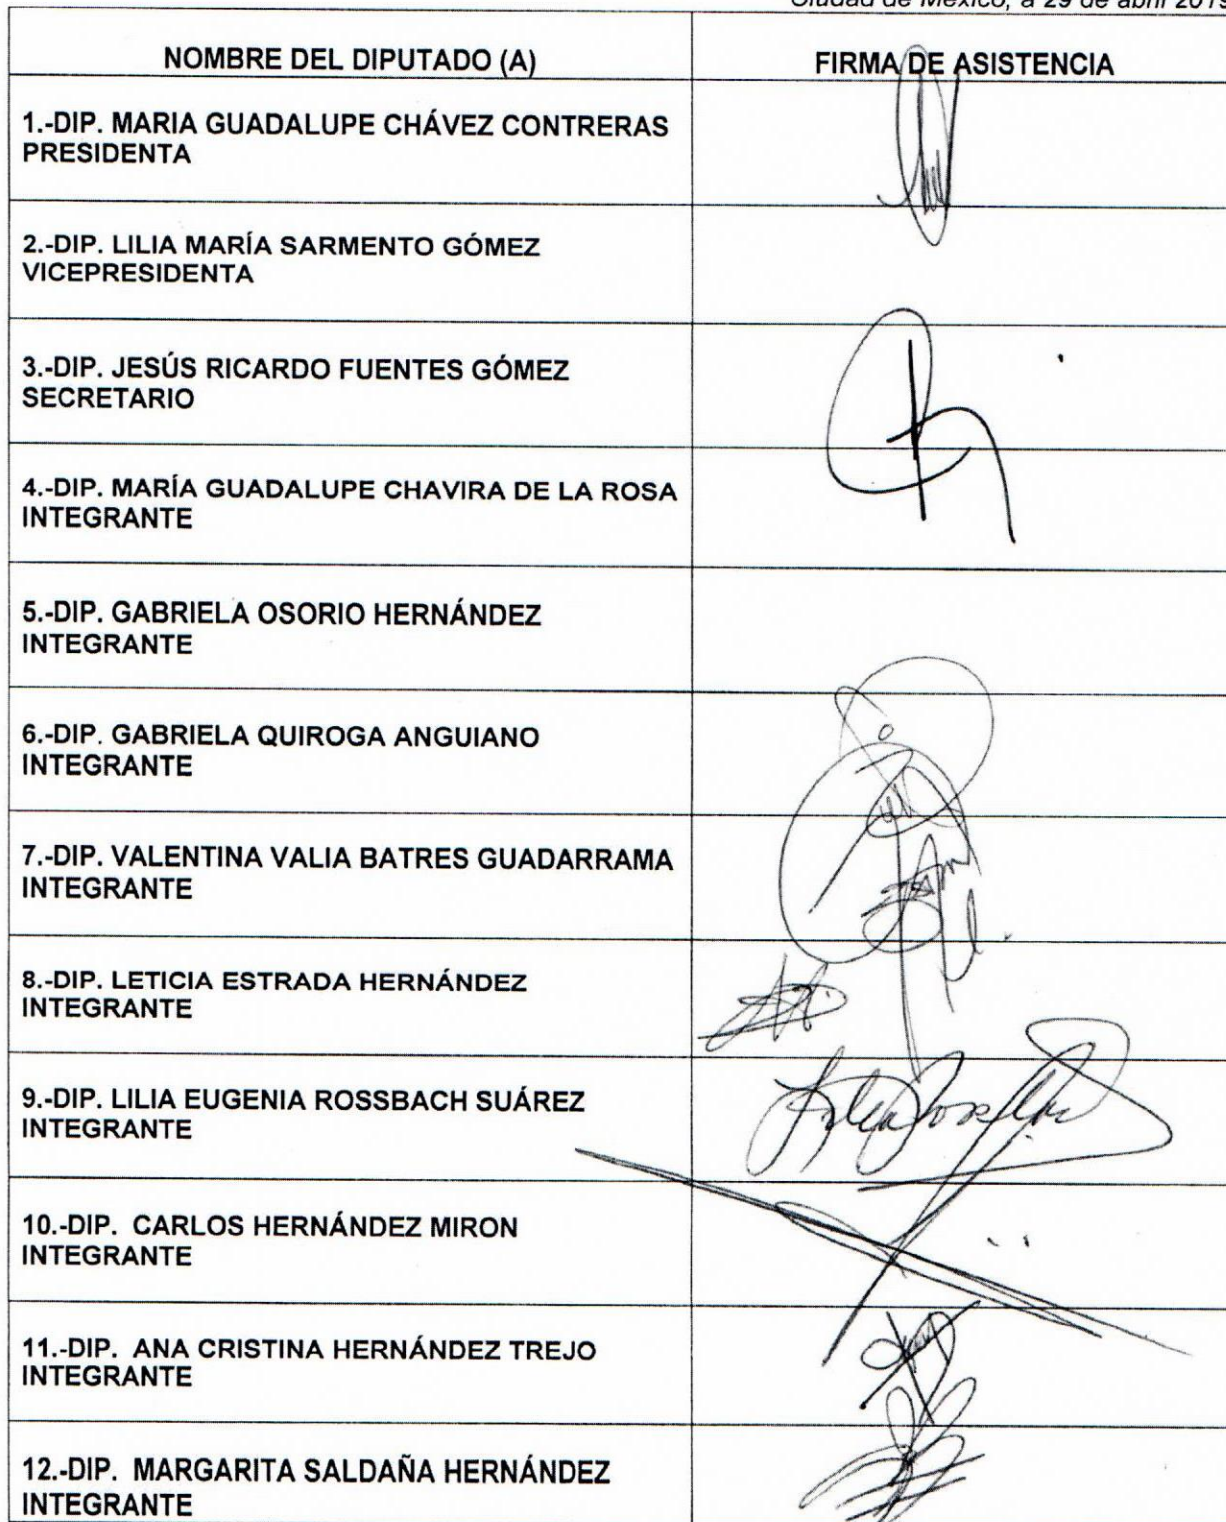 Ciudad de México, a 29 de abril 2019
NOMBRE DEL DIPUTADO (A)
FIRMA DE ASISTENCIA
1.-DIP. MARIA GUADALUPE CHÁVEZ CONTRERAS
PRESIDENTA
2.-DIP. LILIA MARÍA SARMENTO GÓMEZ
VICEPRESIDENTA
3.-DIP. JESÚS RICARDO FUENTES GÓMEZ
SECRETARIO
4.-DIP. MARÍA GUADALUPE CHAVIRA DE LA ROSA
INTEGRANTE
5.-DIP. GABRIELA OSORIO HERNÁNDEZ
INTEGRANTE
6.-DIP. GABRIELA QUIROGA ANGUIANO
INTEGRANTE
7.-DIP. VALENTINA VALIA BATRES GUADARRAMA
INTEGRANTE
8.-DIP. LETICIA ESTRADA HERNÁNDEZ
INTEGRANTE
9.-DIP. LILIA EUGENIA ROSSBACH SUÁREZ
INTEGRANTE
10.-DIP. CARLOS HERNÁNDEZ MIRON
INTEGRANTE
11.-DIP. ANA CRISTINA HERNÁNDEZ TREJO
INTEGRANTE
12.-DIP. MARGARITA SALDAÑA HERNÁNDEZ
INTEGRANTE